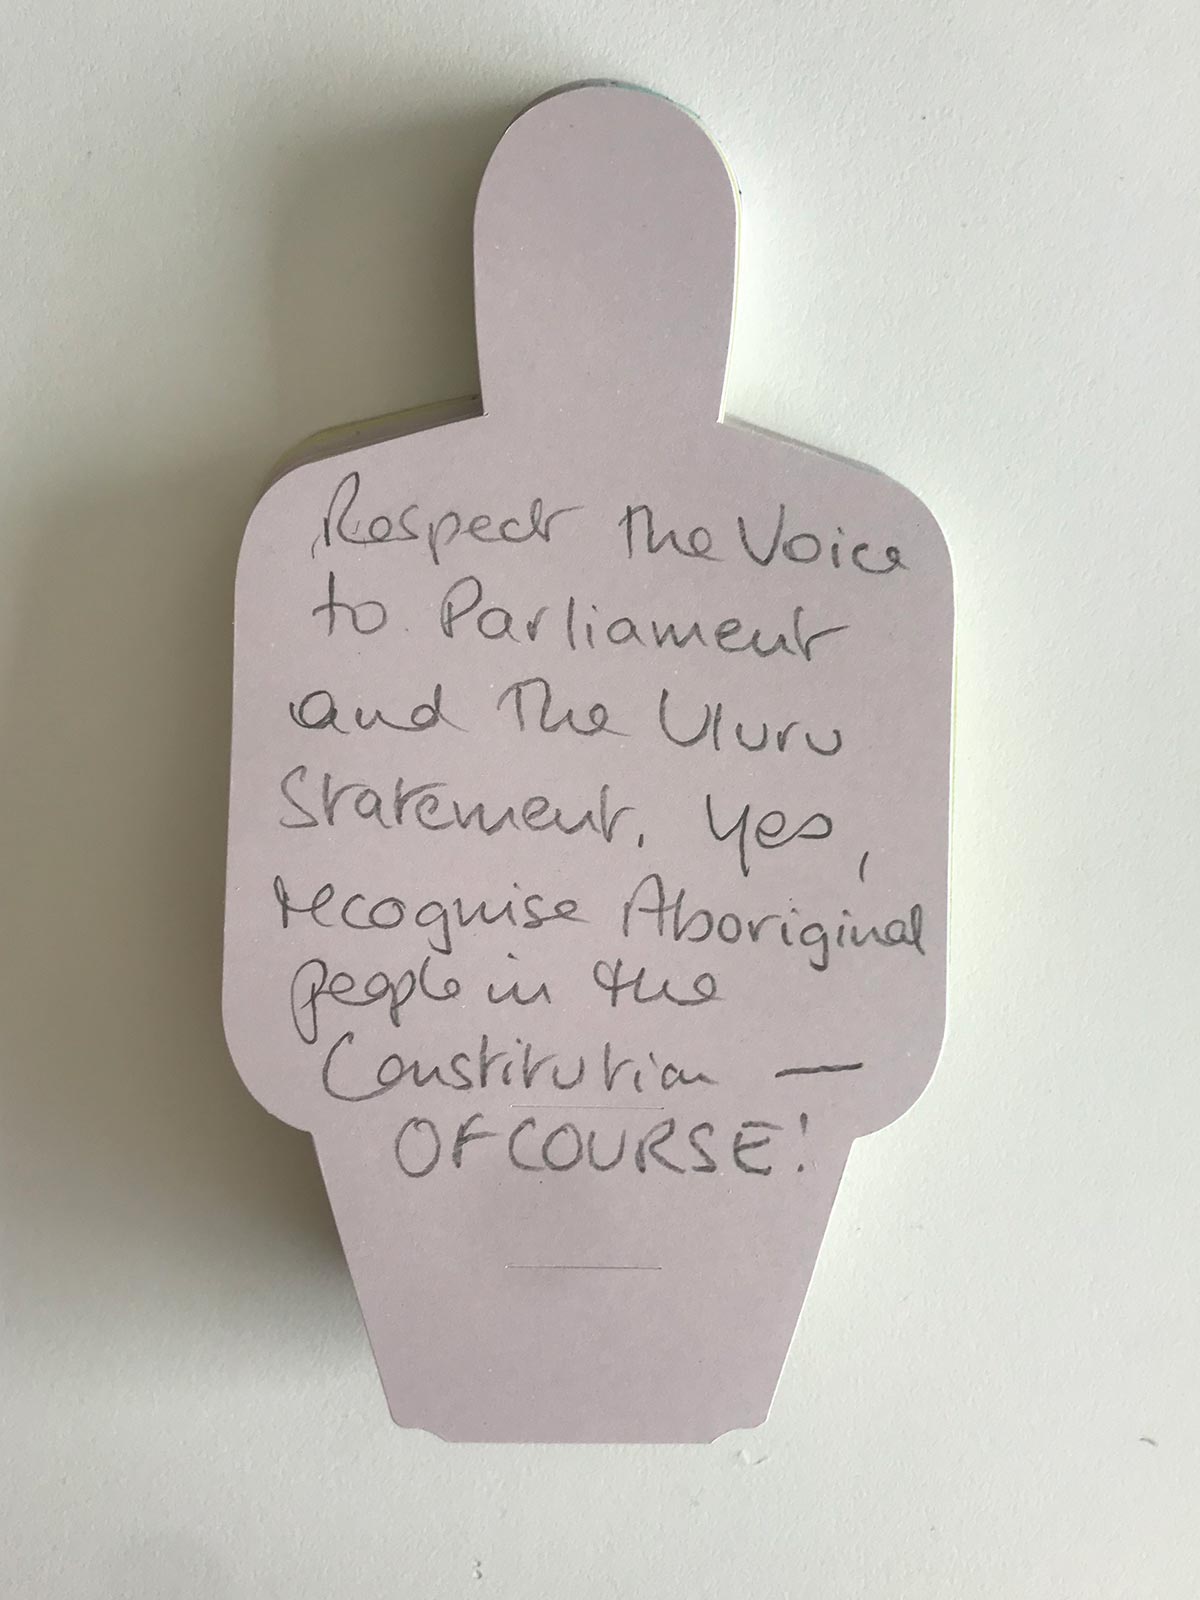 Respect the Voice
to Parliament
and The Uluru
Statement. Yes,
recognise Aboriginal
people in the
Constitution —
OF COURSE!